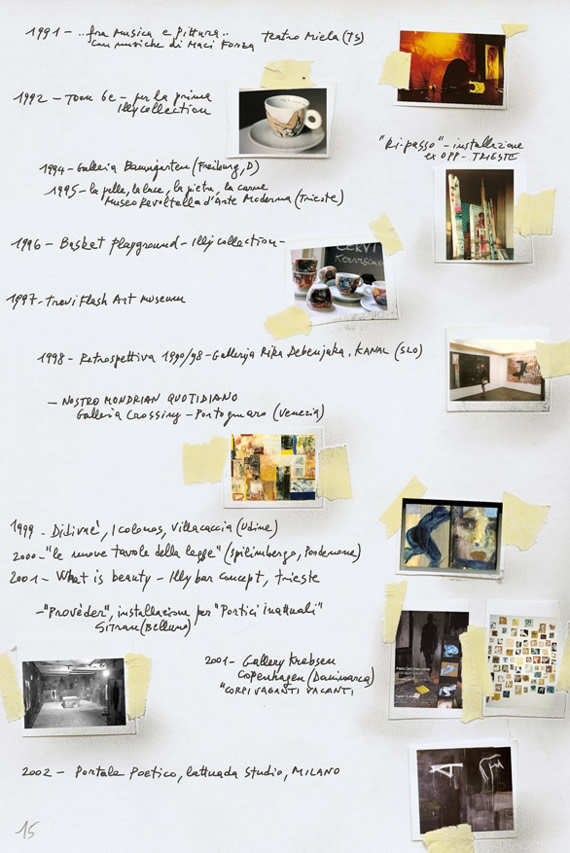 1991 - ..fra Musica e Pittura.. Teatro Miela (TS)
con musiche di Maci Forza
1992 - Tom be - per la prima
Illycollection
"Ri-passo" - installazione
ex OPP - TRIESTE
1994 - Galleria Baumgarten (Freiburg, D)
1995 - la pelle, la luce, la pietra, la carne
Museo Revoltella d'Arte Moderna (Trieste)
1996 - Basket Playground - Illycollection -
1997 - Trevi Flash Art Museum
1998 - Retrospettiva 1990/98 - Gallerija Rika Debenjaka, KANAL (SLO)
- NOSTRO MONDRIAN QUOTIDIANO
Galleria Crossing - Portogruaro (Venezia)
1999 - Didivrè, I colonos, Villacaccia (Udine)
2000 - "le nuove tavole della legge" (Spilimbergo, Pordenone)
2001 - What is beauty - Illy bar concept, trieste
- "Provèder", installazione per "Portici inattuali"
SITran (Belluno)
2001 - Gallery Krebsen
Copenhagen (Danimarca)
"CORPI VAGANTI VACANTI
2002 - Portale Poetico, lattuada Studio, MILANO
15